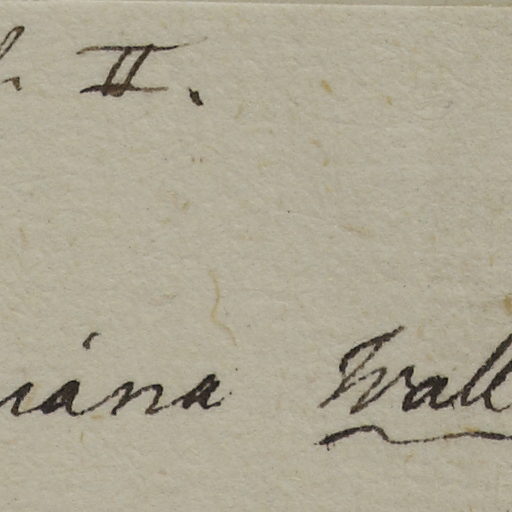 II.
iana Wall